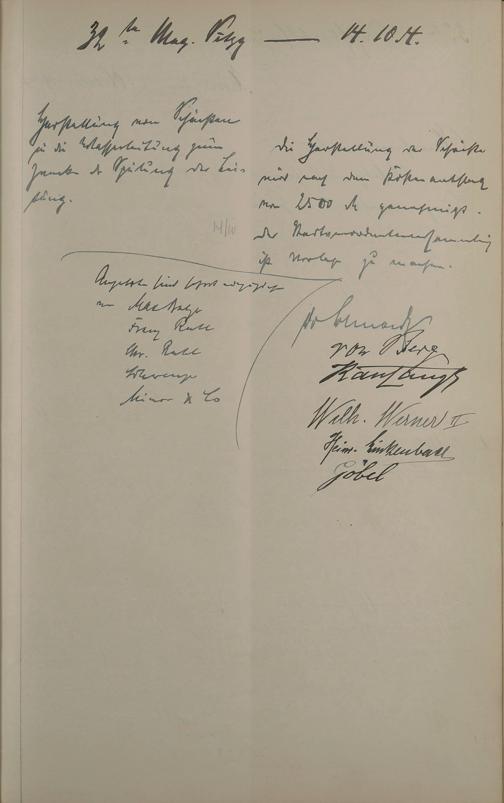 32 te Mag. Sitzg — 14.10.4.
Herstellung von Schächten
in die Wasserleitung zum
Zwecke der Spülung der Lei-
tung.
Die Herstellung der Schächte
wird nach dem Kostenanschlag
von 2500 M genehmigt.
Der Stadtverordnetenversammlung
ist Vorlage zu machen.
Angebote sind
von
Franz Ruhl
Chr. Ruhl
Minor & Co
von Berg
Wilh. Werner II
Heinr. Einkenbach
Göbel